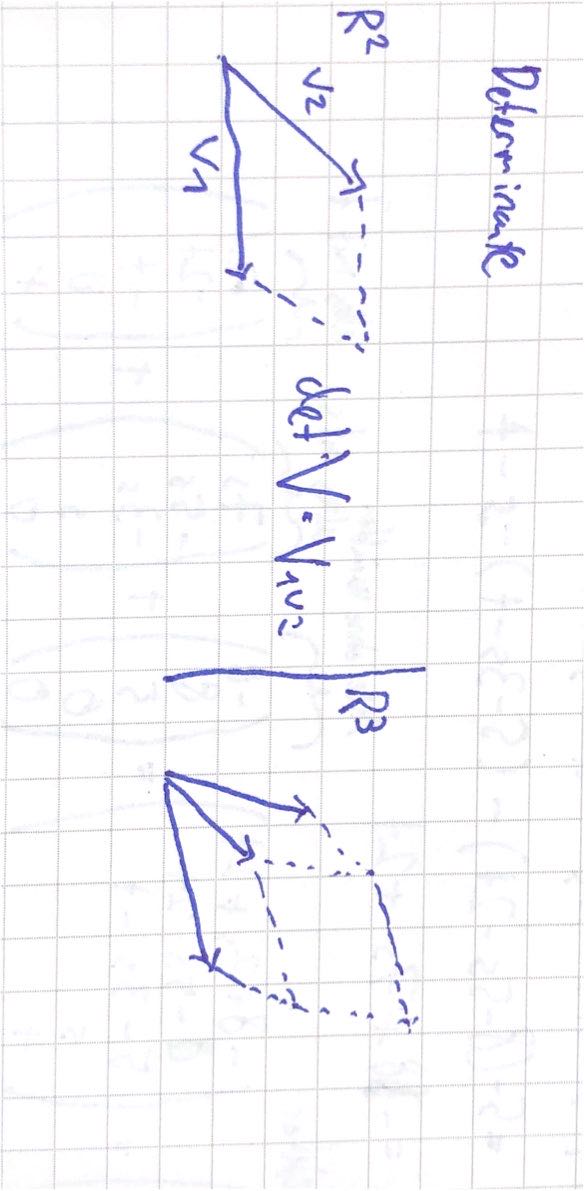 Determinante
R²
V2
V1
det V = V1V2
R3